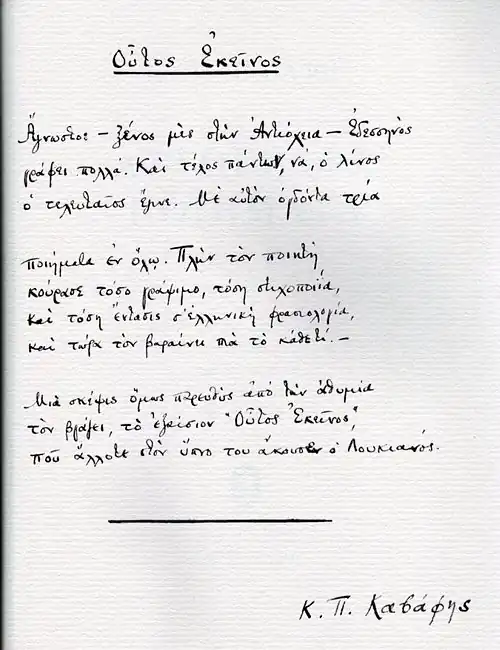 Οὗτος Ἐκεῖνος
Ἄγνωστος – ξένος μὲς στὴν Ἀντιόχεια – Ἐδεσσηνὸς
γράφει πολλά. Καὶ τέλος πάντων, νά, ὁ λίνος
ὁ τελευταῖος ἔγινε. Μὲ αὐτὸν ὀγδόντα τρία
ποιήματα ἐν ὅλῳ. Πλὴν τὸν ποιητὴ
κούρασε τόσο γράψιμο, τόση στιχοποιΐα,
καὶ τόση ἔντασις σ' ἑλληνικὴ φρασιολογία,
καὶ τώρα τὸν βαραίνει πιὰ τὸ κάθετί. –
Μιὰ σκέψις ὅμως παρευθὺς ἀπὸ τὴν ἀθυμία
τὸν βγάζει, τὸ ἐξαίσιον "Οὗτος Ἐκεῖνος",
ποὺ ἄλλοτε στὸν ὕπνο του ἄκουσεν ὁ Λουκιανός.
Κ. Π. Καβάφης